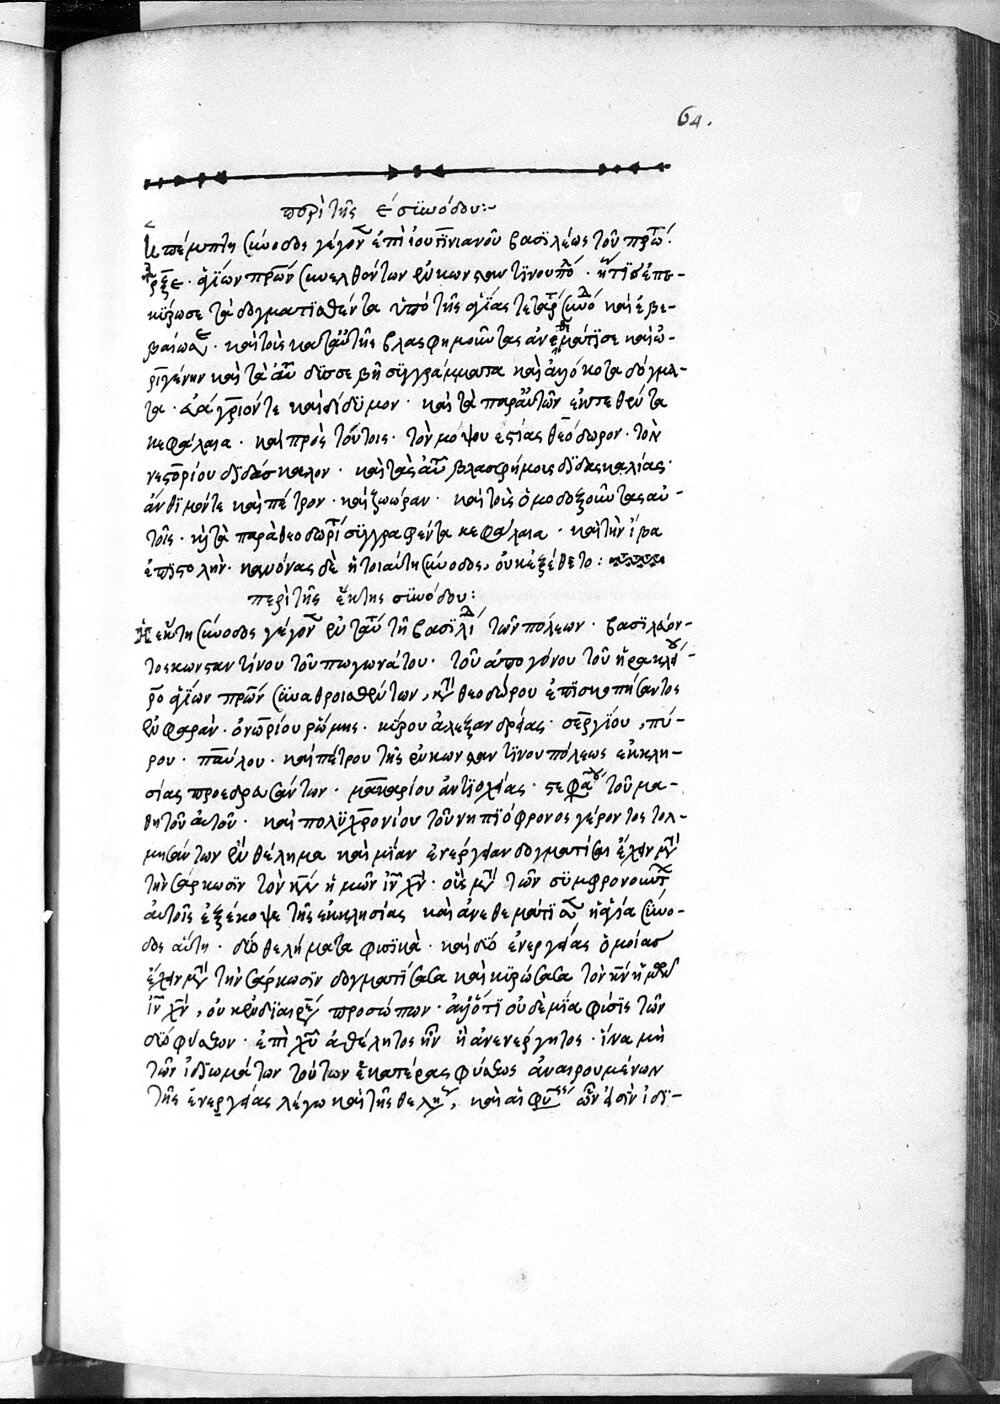 64.
περὶ τῆς ε συνόδου:~
Ἡ πέμπτη σύνοδος γέγον ἐπὶ ἰουστινιανοῦ βασιλέως τοῦ πρώ.
ρξε· ἁγίων πρων συνελθόντων ἐν κωνσταντινουπό· ἥτις ἐπε-
κύρωσε τὰ δογματισθέντα ὑπὸ τῆς ἁγίας τετάρ συνό καὶ ἐβε-
βαίωσε· καὶ τοὺς κατ αὐτῆς βλασφημοῦντας ἀνεθεμάτισε καὶ ὠ-
ριγένην καὶ τὰ αὐ δυσσεβῆ συγγράμματα καὶ ἀλλόκοτα δόγμα-
τα· εὐάγριόν τε καὶ δίδυμον· καὶ τὰ παρ αὐτῶν ἐκτεθέντα
κεφάλαια· καὶ πρὸς τούτοις· τὸν μοψουεστίας θεόδωρον· τὸν
νεστορίου διδάσκαλον· καὶ τὰς αὐ βλασφήμοις διδασκαλίας·
ἄνθιμόν τε καὶ πέτρον· καὶ ζωόραν· καὶ τοὺς ὁμοδοξοῦντας αὐ-
τοῖς· κ τὰ παρὰ θεοδωρί συγγραφέντα κεφάλαια· καὶ τὴν ἴβα
ἐπιστολήν· κανόνας δὲ ἡ τοιαύτη σύνοδος, οὐκ ἐξέθετο:
περὶ τῆς ἕκτης συνόδου:
Ἡ ἕκτη σύνοδος γέγον ἐν ταύ τῇ βασιλί τῶν πόλεων· βασιλεύον-
τος κωνσταντίνου τοῦ πωγωνάτου· τοῦ ἀπογόνου τοῦ ἡρακλεί-
ρο ἁγίων πρων συναθροισθέντων, κτ θεοδώρου ἐπισκοπήσαντος
ἐν φαρὰν· ὀνωρίου ῥώμης· κύρου ἀλεξανδρείας· σεργίου, πύ-
ρου· παύλου· καὶ πέτρου τῆς ἐν κωνσταντινουπόλεως ἐκκλη-
σίας προεδρευσάντων· μακαρίου ἀντιοχείας· στεφά τοῦ μα-
θητοῦ αὐτοῦ· καὶ πολυχρονίου τοῦ νηπιόφρονος γέροντος τολ-
μησάντων ἓν θέλημα καὶ μίαν ἐνέργειαν δογματίσαι ἔχειν μτ
τὴν σάρκωσιν τὸν κν ἡμῶν ιν χν· οὓς μτ τῶν συμφρονούντ
αὐτοῖς ἐξέκοψε τῆς ἐκκλησίας καὶ ἀνεθεμάτισ ἡ ἁγία σύνο-
δος αὕτη· δύο θελήματα φυσικὰ· καὶ δύο ἐνεργείας ὁμοίας
ἔχειν μτ τὴν σάρκωσιν δογματίσασα καὶ κυρώσασα τὸν κν ἡμῶν
ιν χν, οὐκ ἐν διαιρέ προσώπων· ἀλλ ὅτι οὐδὲ μία φύσις τῶν
δύο φύσεων· ἐπὶ χυ ἀθέλητος ἦν ἢ ἀνενέργητος· ἵνα μὴ
τῶν ἰδιωμάτων τούτων ἑκατέρας φύσεως ἀναιρουμένων
τῆς ἐνεργείας λέγω καὶ τῆς θελη, καὶ αἱ φύ ὧν εἰσὶν ἰδι-